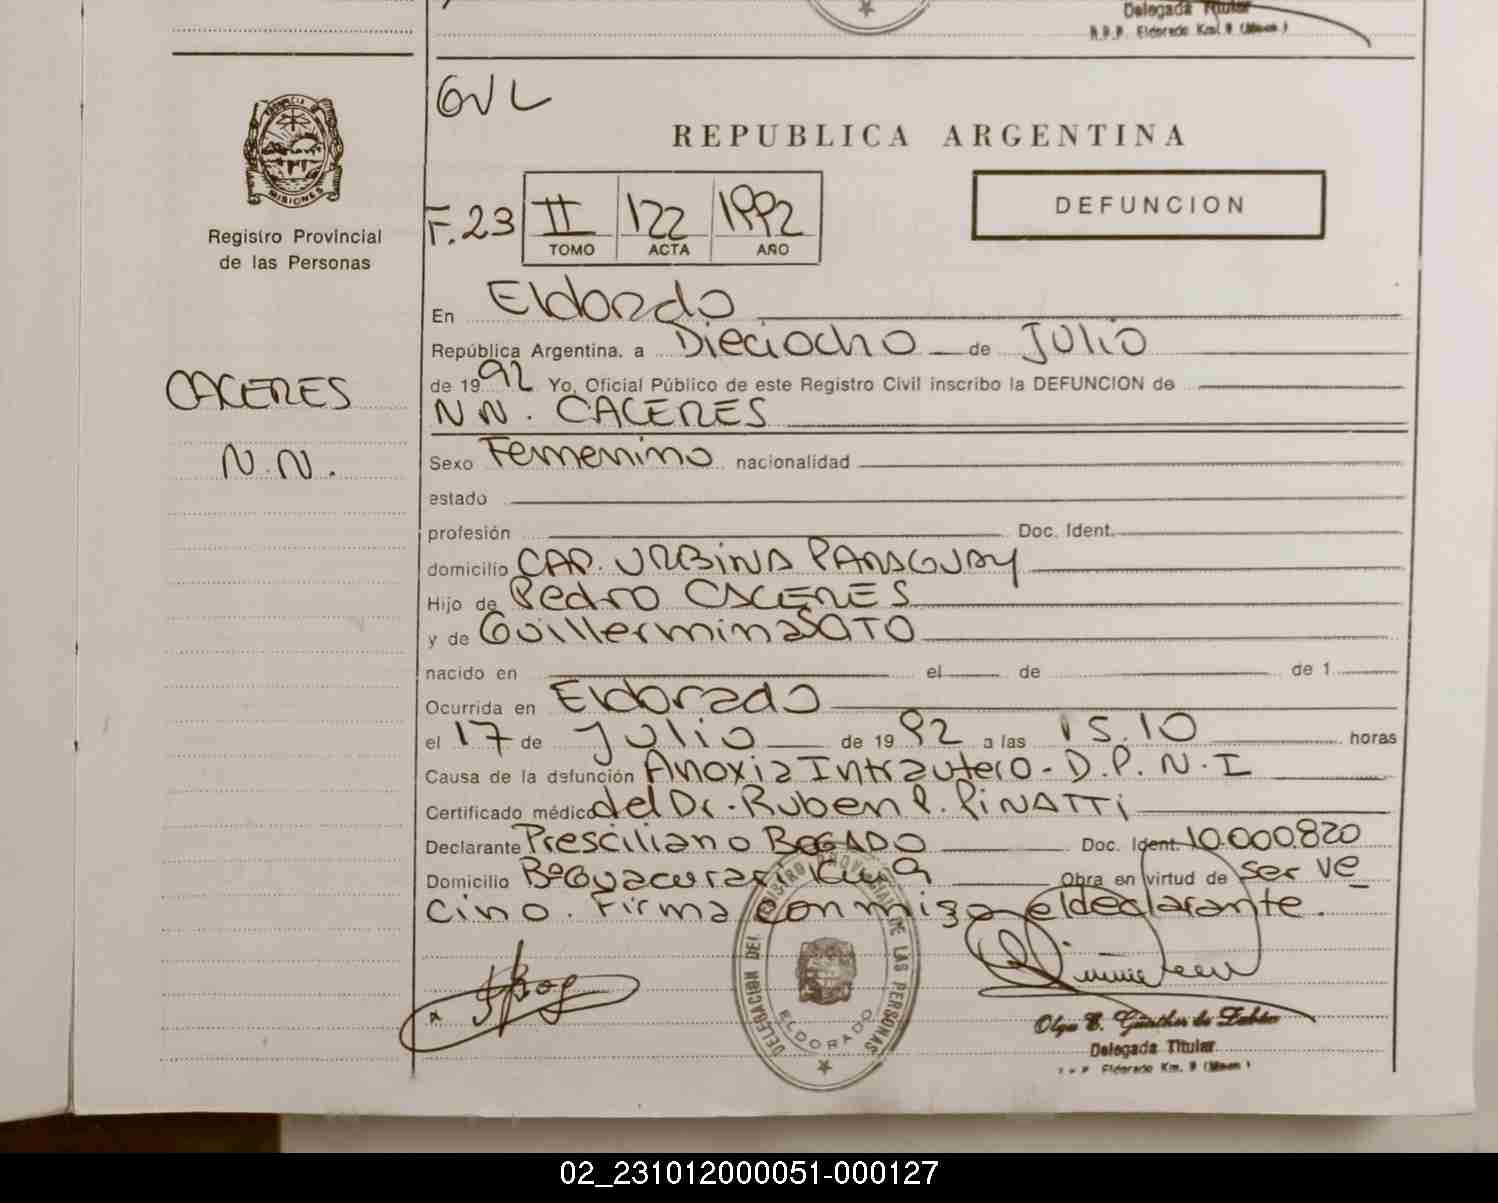 Delegada Titular
R.P.P. Eldorado Km. 9 (Mnes.)
GVL
REPUBLICA ARGENTINA
PROVINCIA DE
MISIONES
Registro Provincial
de las Personas
F.23
II 122 1992
TOMO ACTA AÑO
DEFUNCION
En Eldorado
República Argentina, a Dieciocho de Julio
de 1992 Yo, Oficial Público de este Registro Civil inscribo la DEFUNCION de
CACERES
N.N. CACERES
N.N.
Sexo Femenino nacionalidad
estado
profesión Doc. Ident.
domicilio CAP. URBINA PARAGUAY
Hijo de Pedro CACERES
y de Guillermina SOTO
nacido en el de de 1
Ocurrida en Eldorado
el 17 de Julio de 1992 a las 15.10 horas
Causa de la defunción Anoxia Intrautero - D.P.N.I
Certificado médico del Dr. Ruben P. PINATTI
Declarante Presciliano BOGADO Doc. Ident. 10.000.820
Domicilio Bº Guacurari Km 9 Obra en virtud de ser ve
cino. Firma conmigo el declarante.
DELEGACION DEL REGISTRO PROVINCIAL DE LAS PERSONAS
ELDORADO
Delegada Titular
Eldorado Km. 9 (Mnes.)
02_231012000051-000127